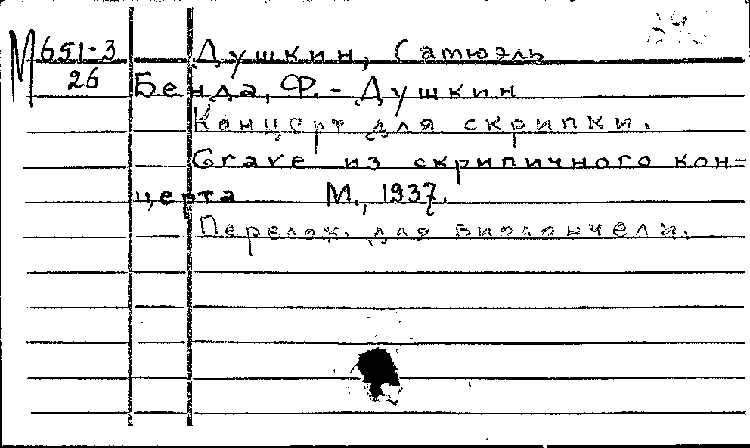 М 651-3 Душкин, Сатюэль
26 Бенда, Ф. - Душкин
Концерт для скрипки.
Grave из скрипичного кон=
церта М., 1937.
Перелож. для виолончели.